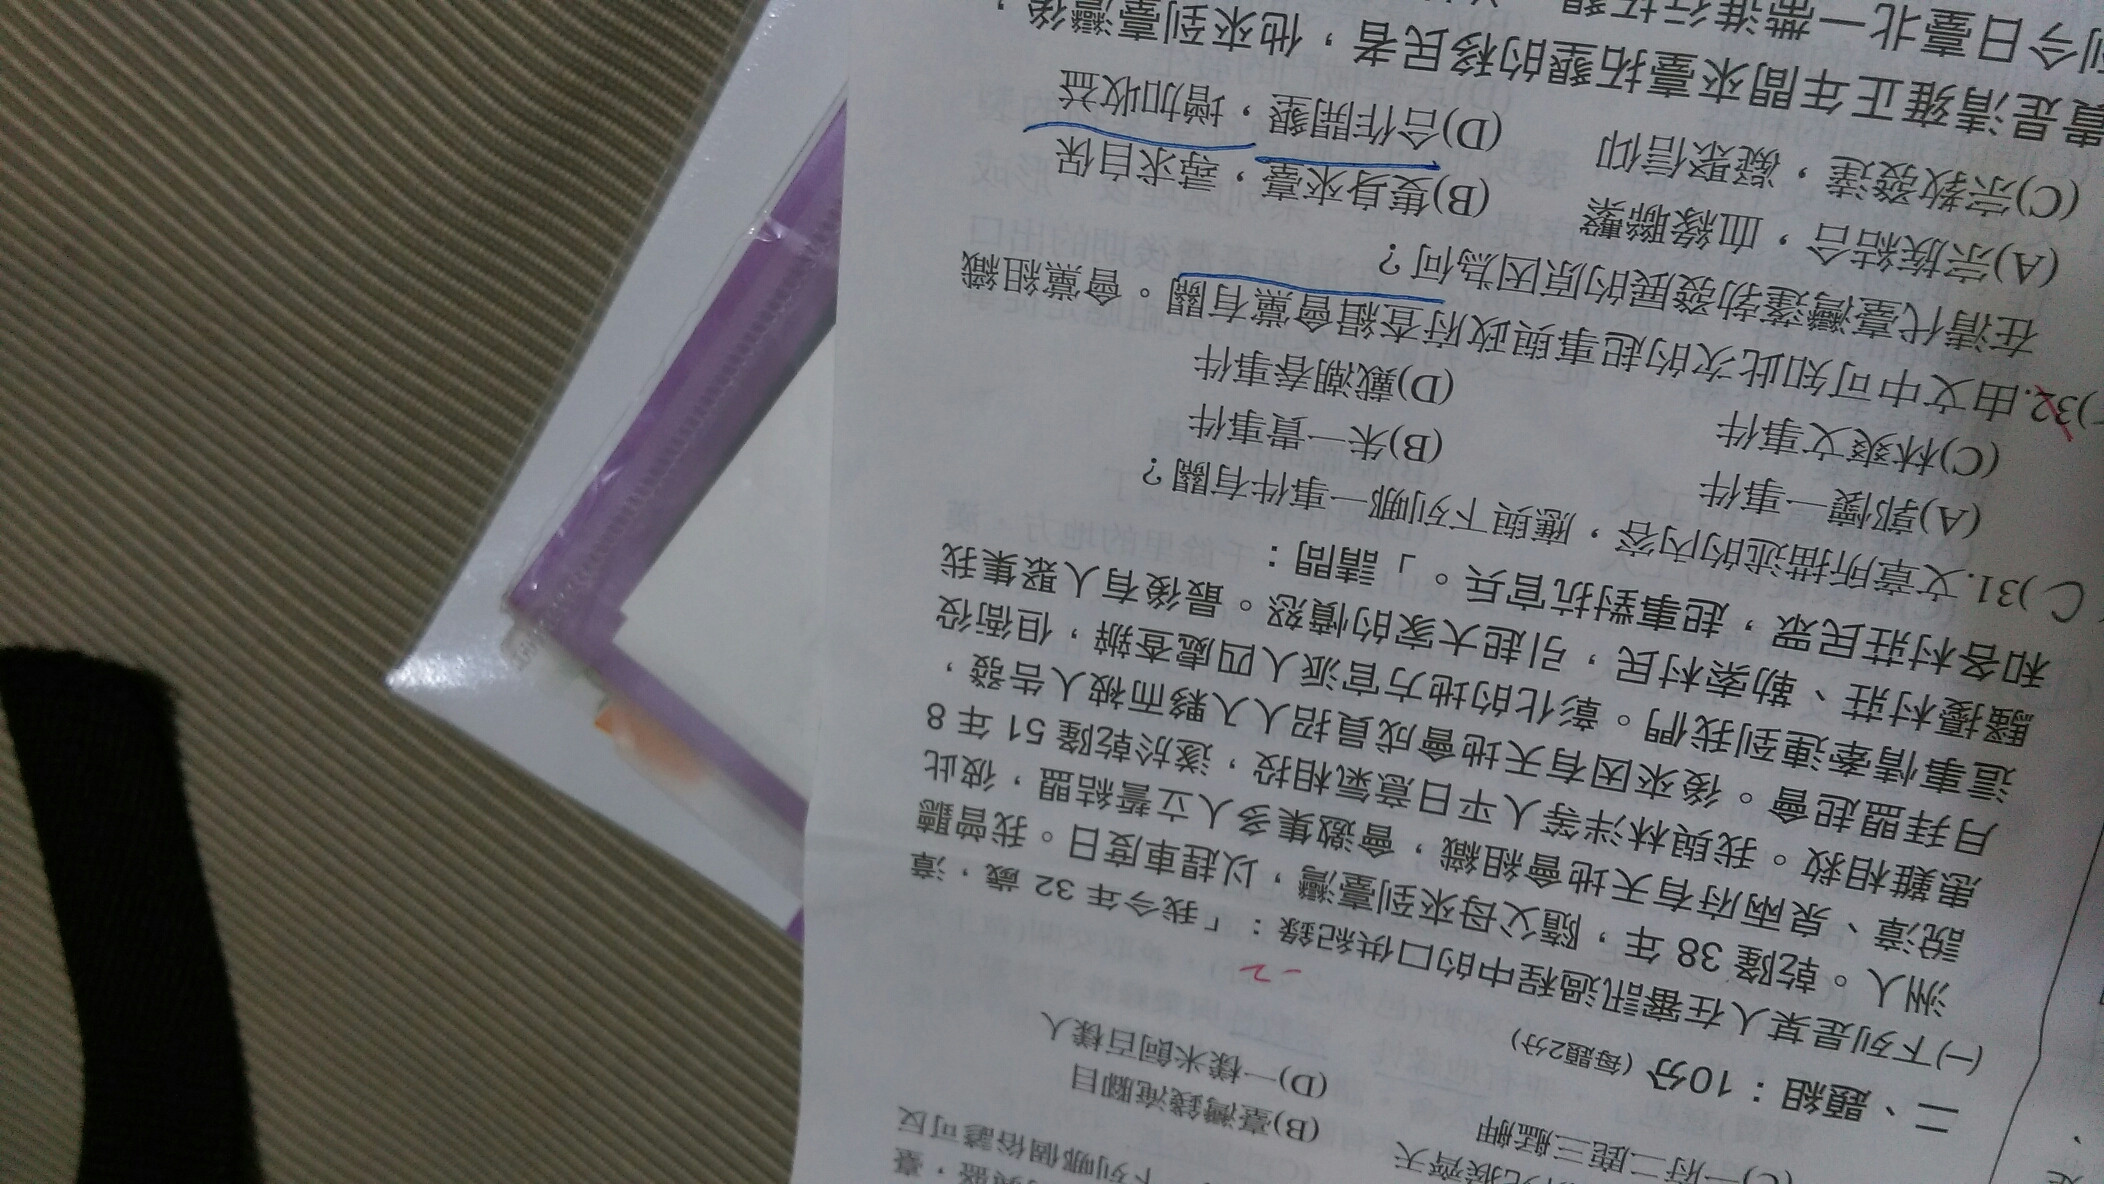 下列哪個俗諺可反
(B)臺灣錢淹腳目
(C)一府二鹿三艋舺
(D)一樣米飼百樣人
二、題組：10分 (每題2分)
-2
(一)下列是某人在審訊過程中的口供紀錄：「我今年 32 歲，漳
洲人。乾隆 38 年，隨父母來到臺灣，以趕車度日。我曾聽
說漳、泉兩府有天地會組織，會邀集多人立誓結盟，彼此
患難相救。我與林泮等人平日意氣相投，遂於乾隆 51 年 8
月拜盟起會。後來因有天地會成員招人入夥而被人告發，
這事情牽連到我們。彰化的地方官派人四處查辦，但衙役
騷擾村莊、勒索村民，引起大家的憤怒。最後有人聚集我
和各村莊民眾，起事對抗官兵。」請問：
C)31.文章所描述的內容，應與下列哪一事件有關？
(A)郭懷一事件
(B)朱一貴事件
(C)林爽文事件
(D)戴潮春事件
)32.由文中可知此次的起事與政府查緝會黨有關。會黨組織
在清代臺灣蓬勃發展的原因為何？
(A)宗族結合，血緣聯繫
(B)隻身來臺，尋求自保
(C)宗教發達，凝聚信仰
(D)合作開墾，增加收益
貴是清雍正年間來臺拓墾的移民者，他來到臺灣後，
到今日臺北一帶進行拓墾